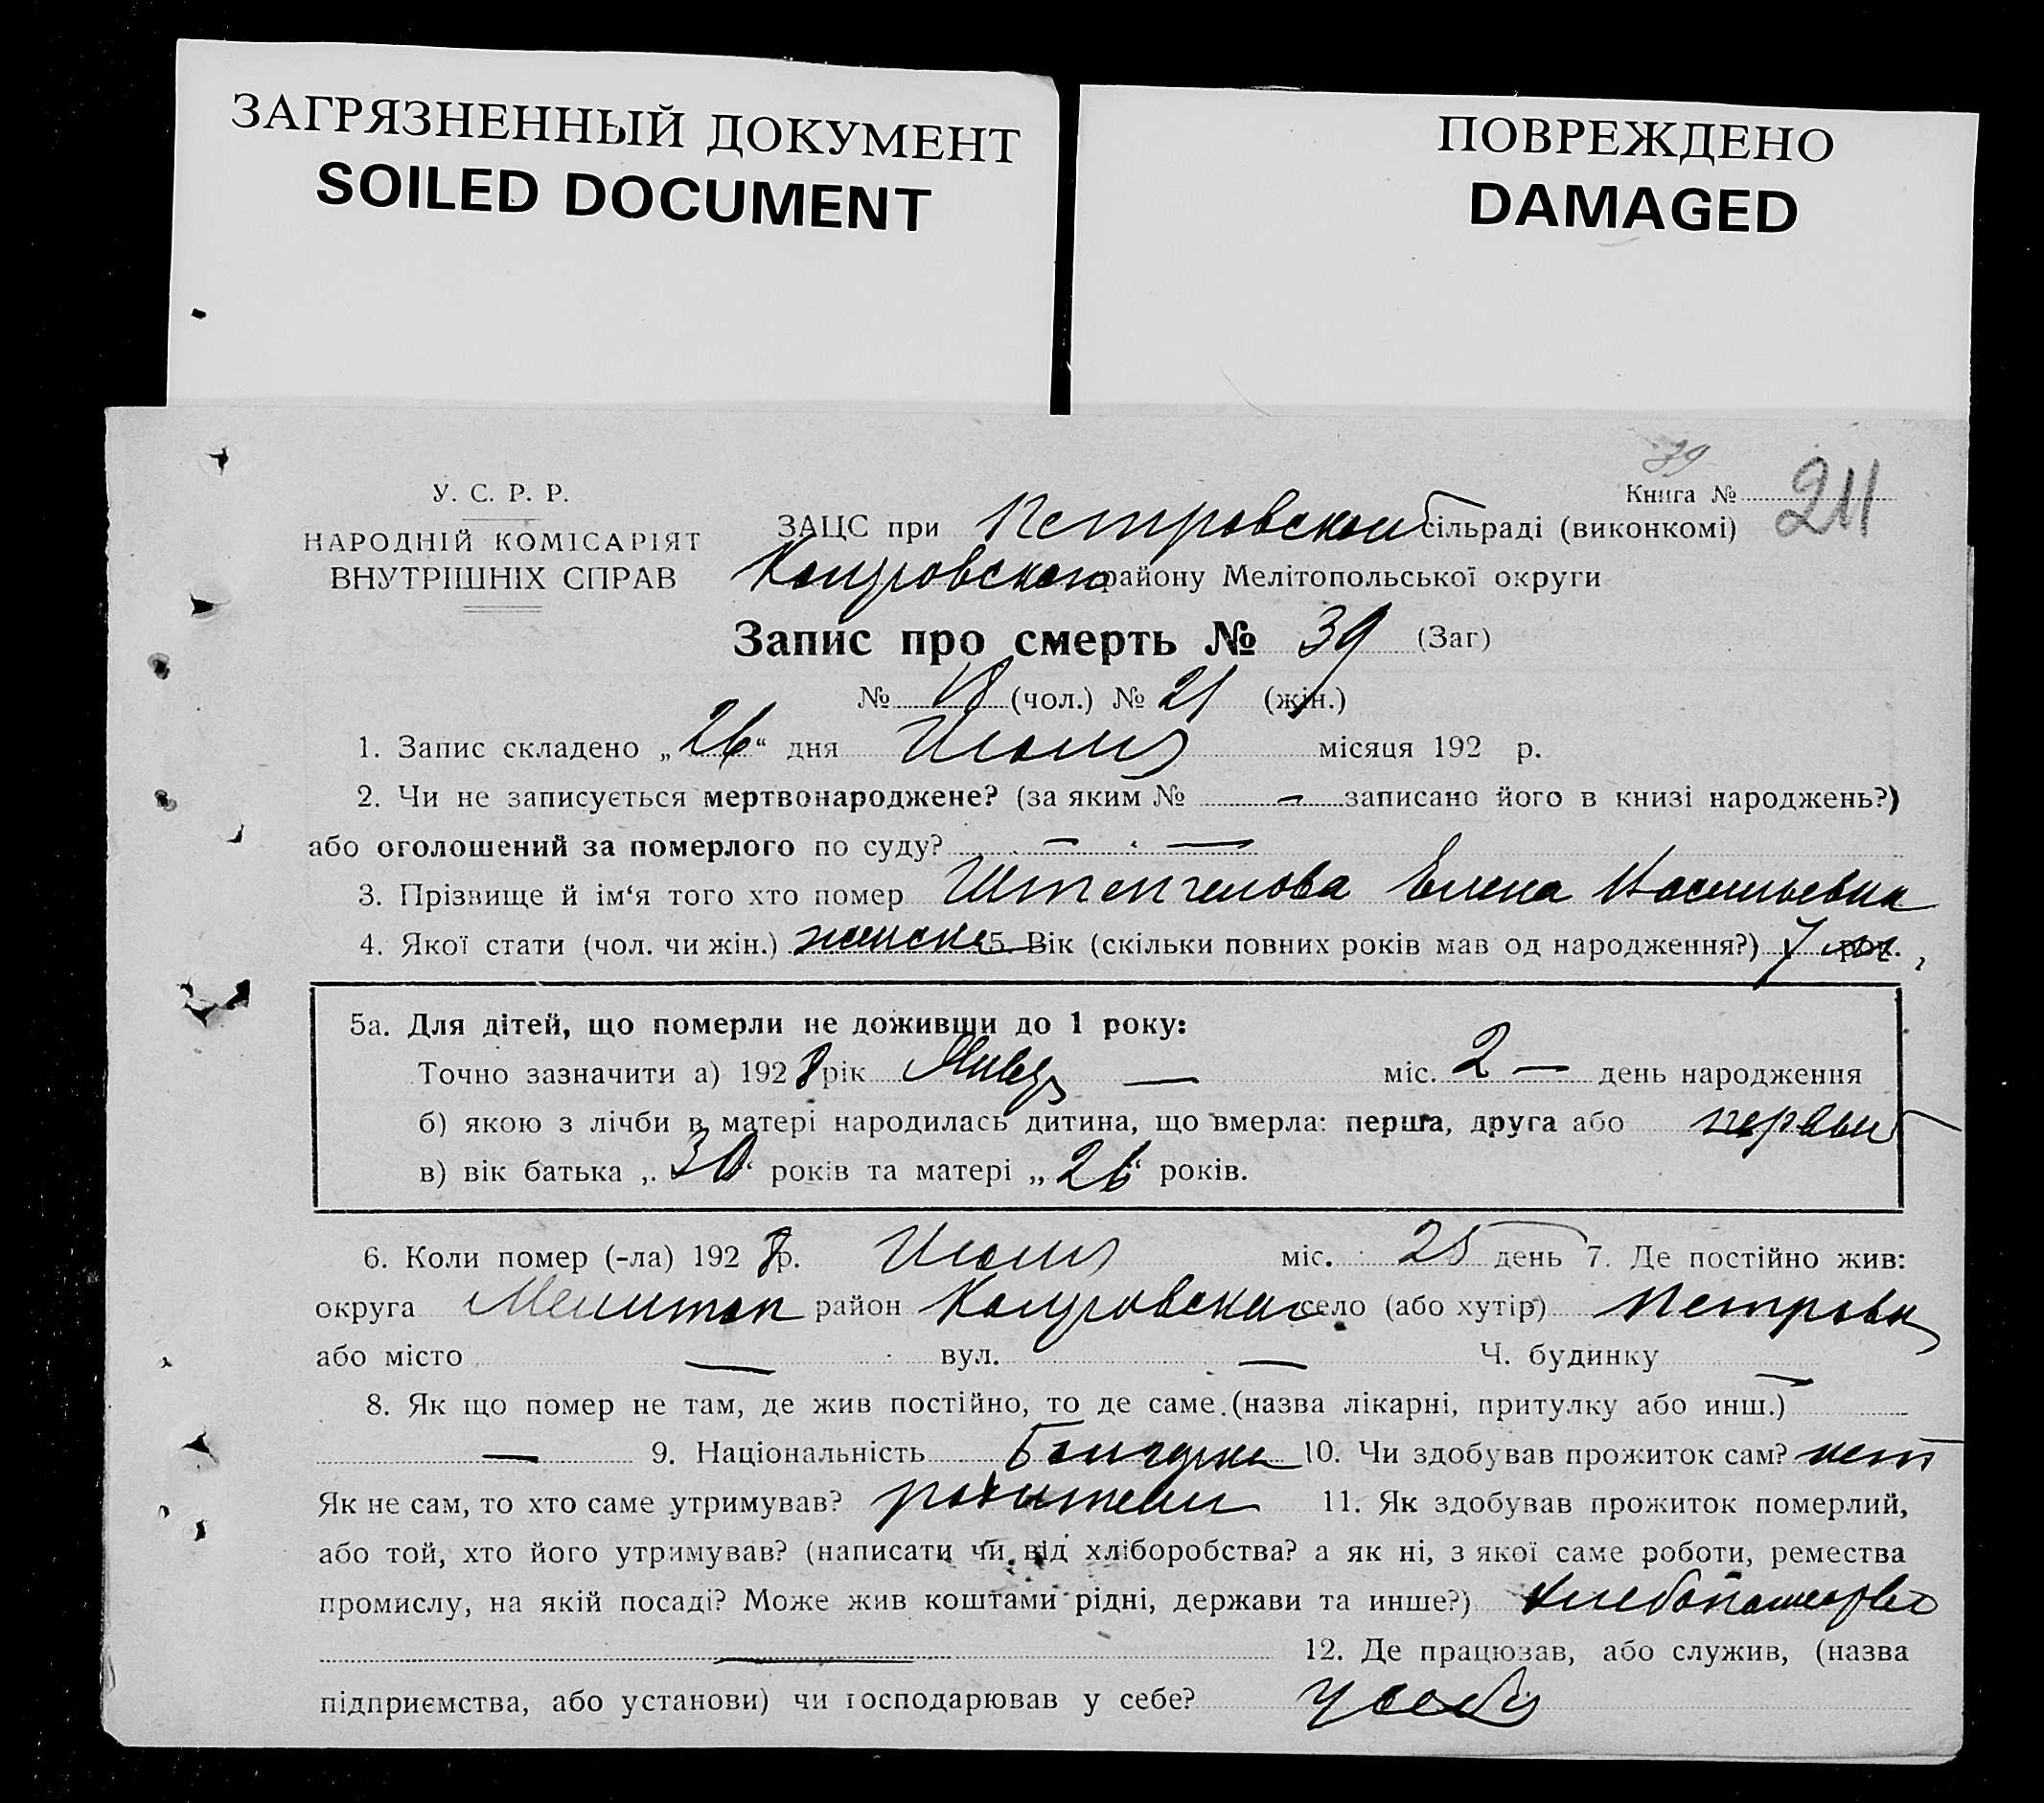 ЗАГРЯЗНЕННЫЙ ДОКУМЕНТ
SOILED DOCUMENT
ПОВРЕЖДЕНО
DAMAGED
39
Книга № 211
У. С. Р. Р.
НАРОДНІЙ КОМІСАРІЯТ
ВНУТРІШНІХ СПРАВ
ЗАЦС при Петровской сільраді (виконкомі)
району Мелітопольської округи
Запис про смерть № 39 (Заг)
№ 18 (чол.) № 21 (жін.)
1. Запис складено „26“ дня Июля місяця 192 р.
2. Чи не записується мертвонароджене? (за яким № — записано його в книзі народжень?)
або оголошений за померлого по суду? — —
3. Прізвище й ім‘я того хто помер Елена Васильевна
4. Якої стати (чол. чи жін.) женска 5. Вік (скільки повних років мав од народження?) 7 рок.
5а. Для дітей, що померли не доживши до 1 року:
Точно зазначити а) 1928 рік Январ — міс. 2 — день народження
б) якою з лічби в матері народилась дитина, що вмерла: перша, друга або первый
в) вік батька „30“ років та матері „26“ років.
6. Коли помер (-ла) 1928 р. Июля міс. 25 день 7. Де постійно жив:
округа Мелитоп район село (або хутір) Петровка
або місто — вул. — Ч. будинку —
8. Як що помер не там, де жив постійно, то де саме (назва лікарні, притулку або инш.)
— 9. Національність Болгарка 10. Чи здобував прожиток сам? нет
Як не сам, то хто саме утримував? родители 11. Як здобував прожиток померлий,
або той, хто його утримував? (написати чи від хліборобства? а як ні, з якої саме роботи, ремества
промислу, на якій посаді? Може жив коштами рідні, держави та инше?) хлебопашество
12. Де працював, або служив, (назва
підприємства, або установи) чи господарював у себе? у себя